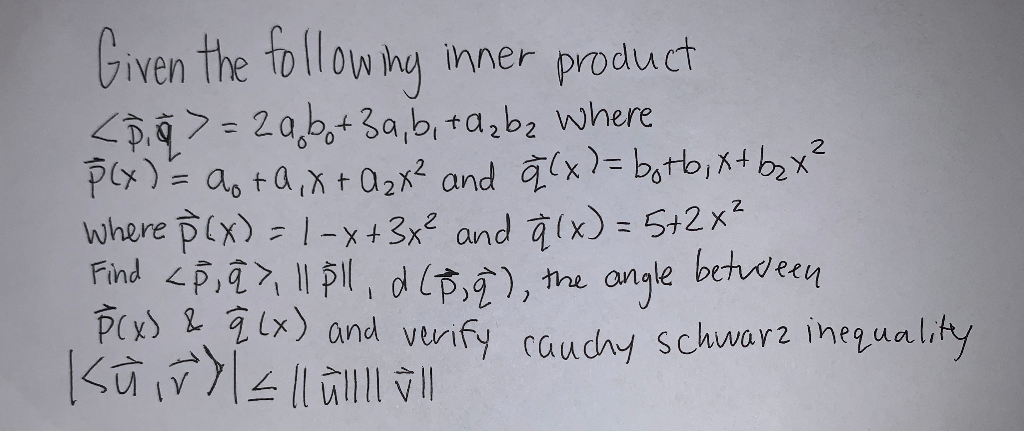 Given the following inner product
<p⃗,q⃗> = 2a₀b₀+3a₁b₁+a₂b₂ where
p⃗(x) = a₀+a₁x+a₂x² and q⃗(x)=b₀+b₁x+b₂x²
where p⃗(x) = 1-x+3x² and q⃗(x) = 5+2x²
Find <p⃗,q⃗>, ||p⃗||, d(p⃗,q⃗), the angle between
p⃗(x) & q⃗(x) and verify cauchy schwarz inequality
|<u⃗,v⃗>| ≤ ||u⃗|| ||v⃗||